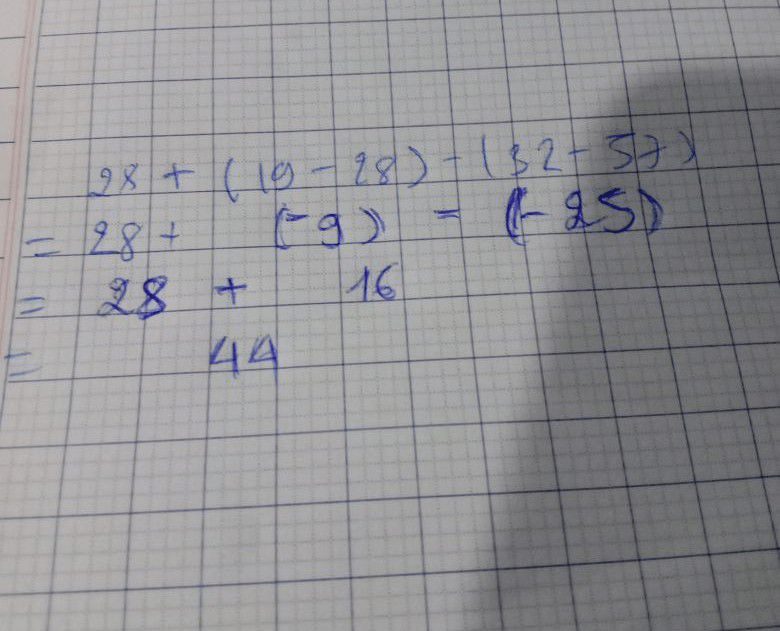 28 + (19 - 28) - (32 - 57)
= 28 + (-9) - (-25)
= 28 + 16
= 44